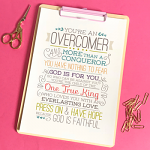 YOU'RE AN
OVERCOMER
MORE THAN A
CONQUEROR
YOU HAVE NOTHING TO FEAR
GOD IS FOR YOU
One True King
EVERLASTING LOVE
PRESS ON & HAVE HOPE
GOD IS FAITHFUL